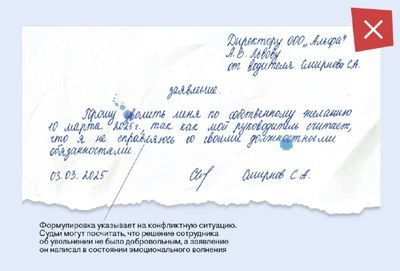 Директору ООО „Альфа“
А.В. Львову
от водителя Смирнова С.А.
заявление.
Прошу уволить меня по собственному желанию
10 марта 2025г., так как мой руководитель считает,
что я не справляюсь со своими должностными
обязанностями.
03.03.2025 Смирнов С.А.
Формулировка указывает на конфликтную ситуацию.
Судьи могут посчитать, что решение сотрудника
об увольнении не было добровольным, а заявление
он написал в состоянии эмоционального волнения